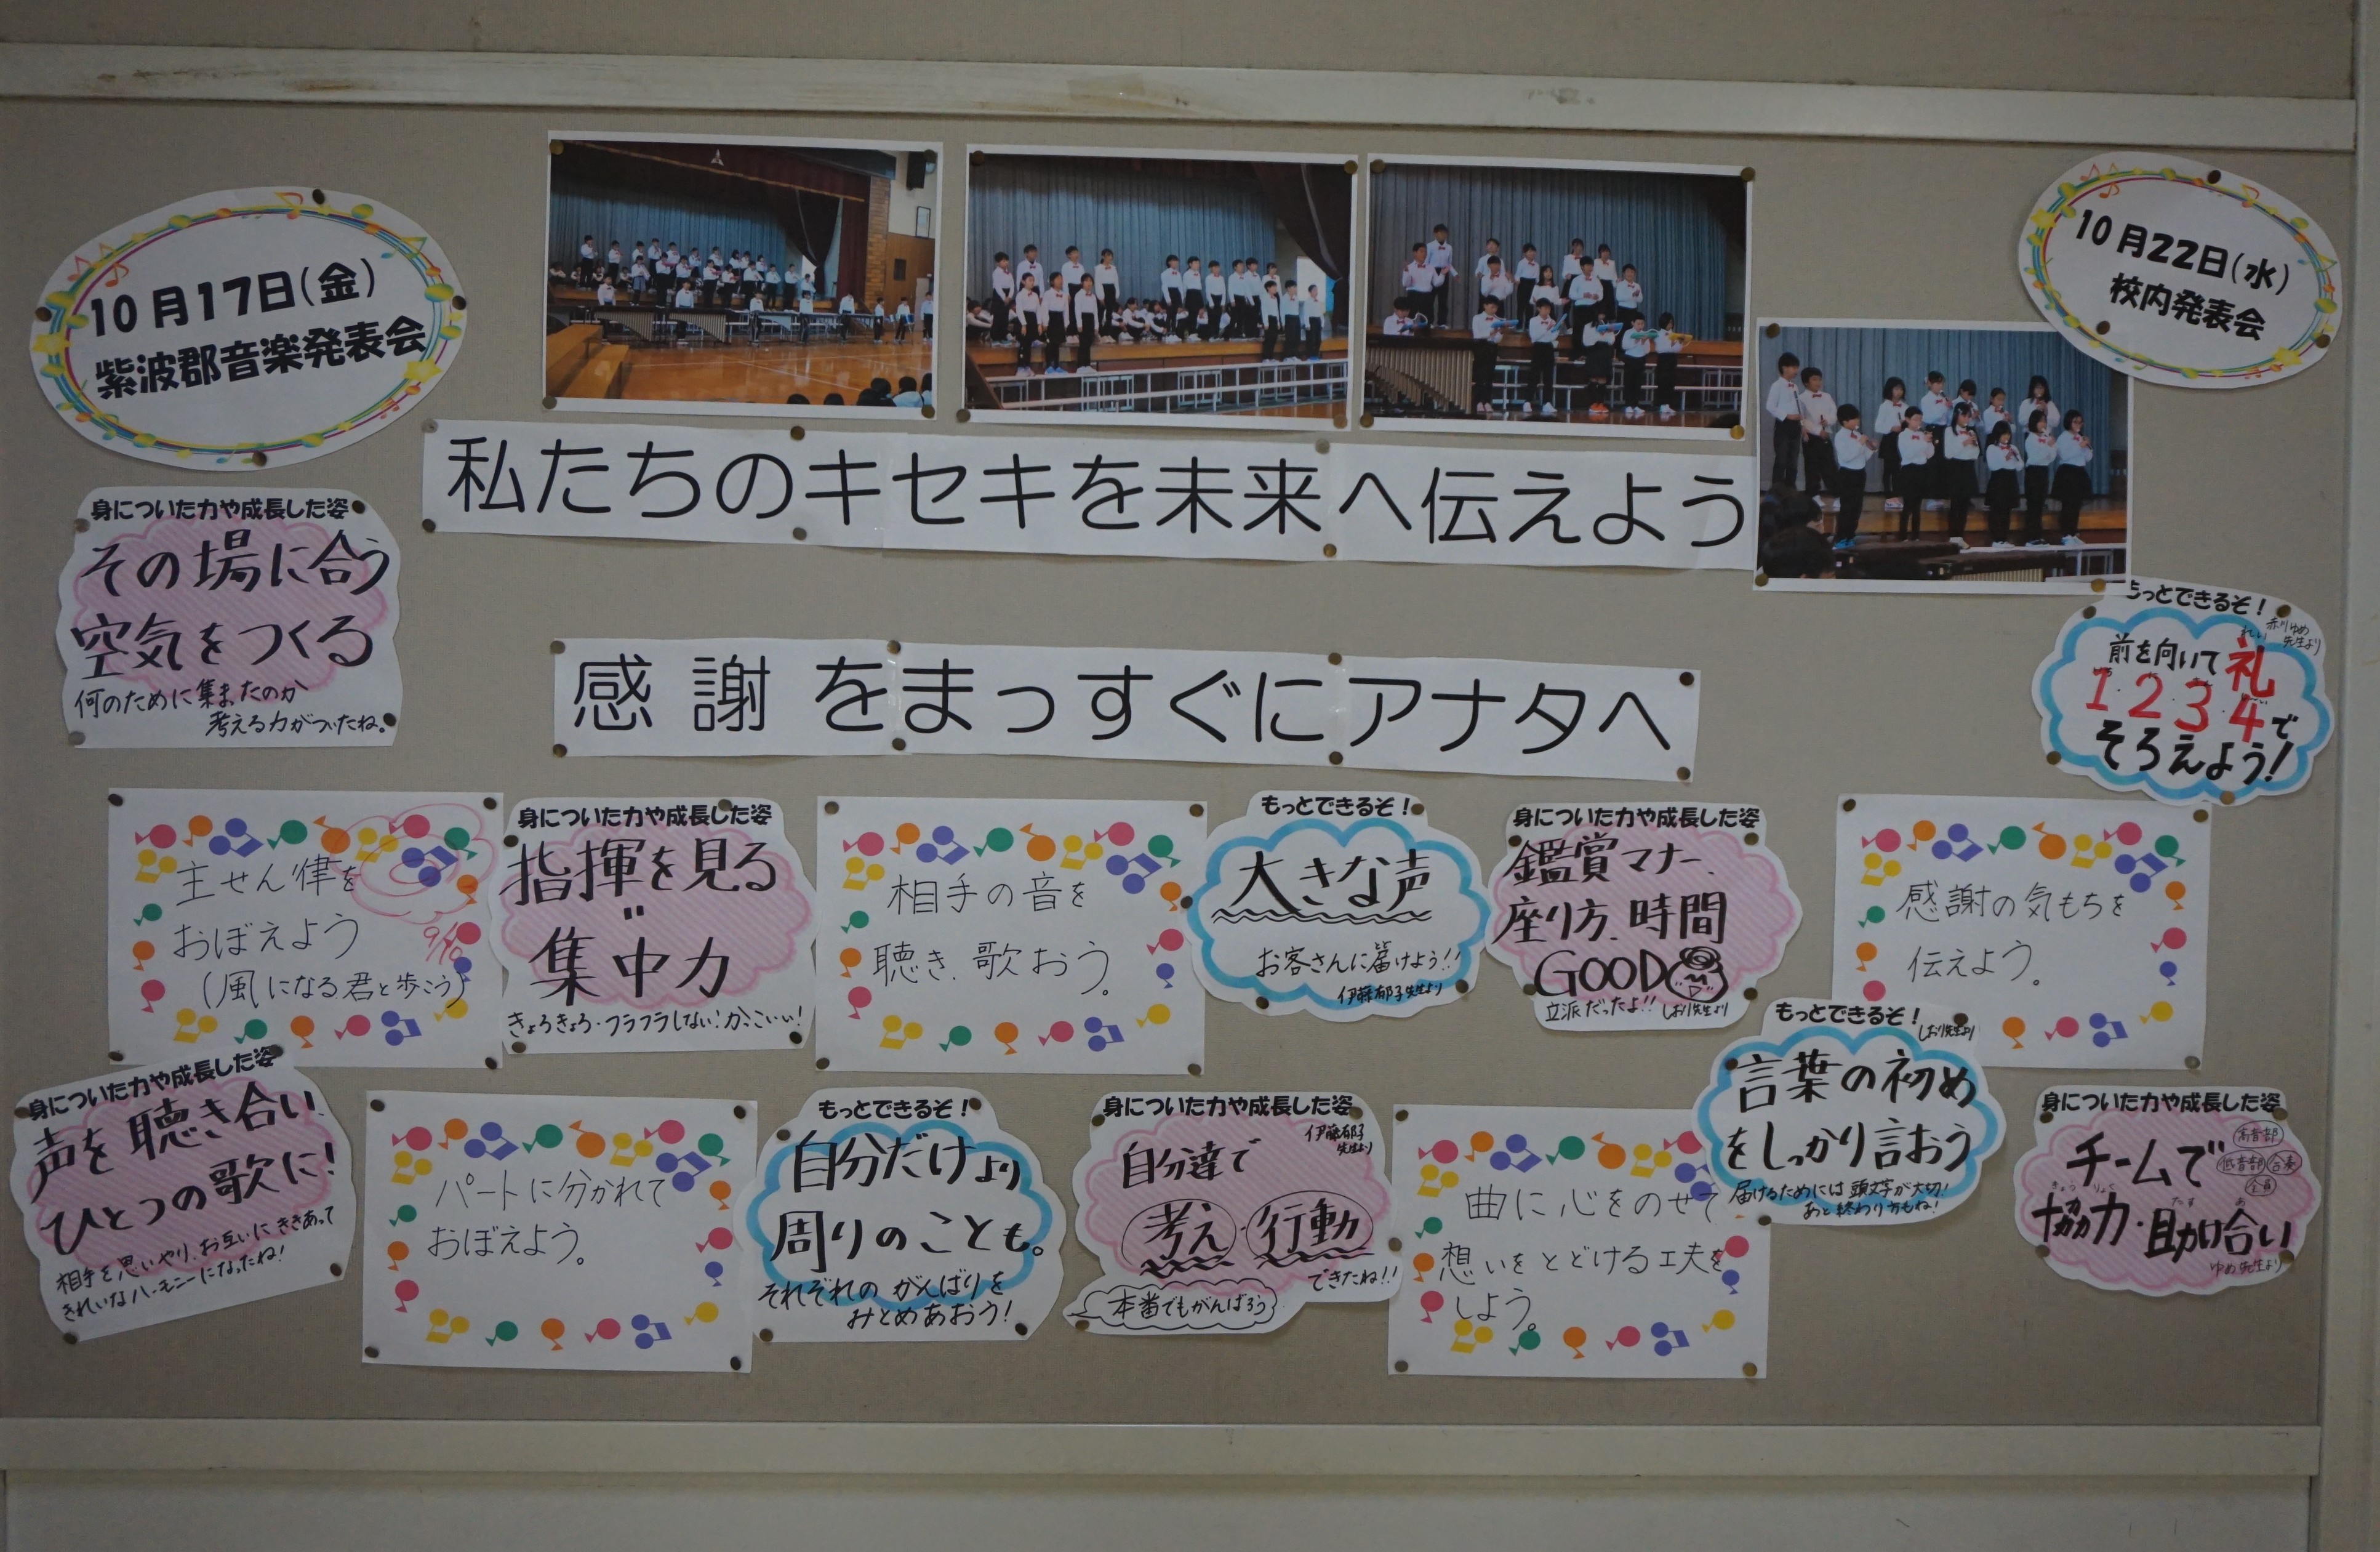 10月17日(金)
紫波郡音楽発表会
10月22日(水)
校内発表会
私たちのキセキを未来へ伝えよう
感謝をまっすぐにアナタへ
身についた力や成長した姿
その場に合う
空気をつくる
何のために集まったのか
考える力がついたね。
もっとできるぞ!
ゆめ
先生より
れい
前を向いて礼
1.2.3.4で
そろえよう!
主せん律を
おぼえよう
(風になる君と歩こう)
9/10
身についた力や成長した姿
指揮を見る
=
集中力
きょろきょろ・フラフラしない!かっこいい!
相手の音を
聴き、歌おう。
もっとできるぞ!
大きな声
お客さんに届けよう!!
伊藤郁子先生より
身についた力や成長した姿
鑑賞マナー、
座り方、時間
GOOD
立派だったよ!! しおり先生より
感謝の気もちを
伝えよう。
身についた力や成長した姿
声を聴き合い、
ひとつの歌に!
相手を思いやり、お互いにききあって
きれいなハーモニーになったね!
パートに分かれて
おぼえよう。
もっとできるぞ!
自分だけより
周りのことも。
それぞれのがんばりを
みとめあおう!
身についた力や成長した姿
伊藤郁子
先生より
自分達で
考え・行動
できたね!!
本番でもがんばろう
曲に心をのせて
想いをとどける工夫を
しよう。
もっとできるぞ!
しおり先生より
言葉の初め
をしっかり言おう
届けるためには頭文字が大切!
あと終わり方もね!
身についた力や成長した姿
チームで
高音部
低音部
合奏
全員
きょう りょく たす あ
協力・助け合い
ゆめ先生より